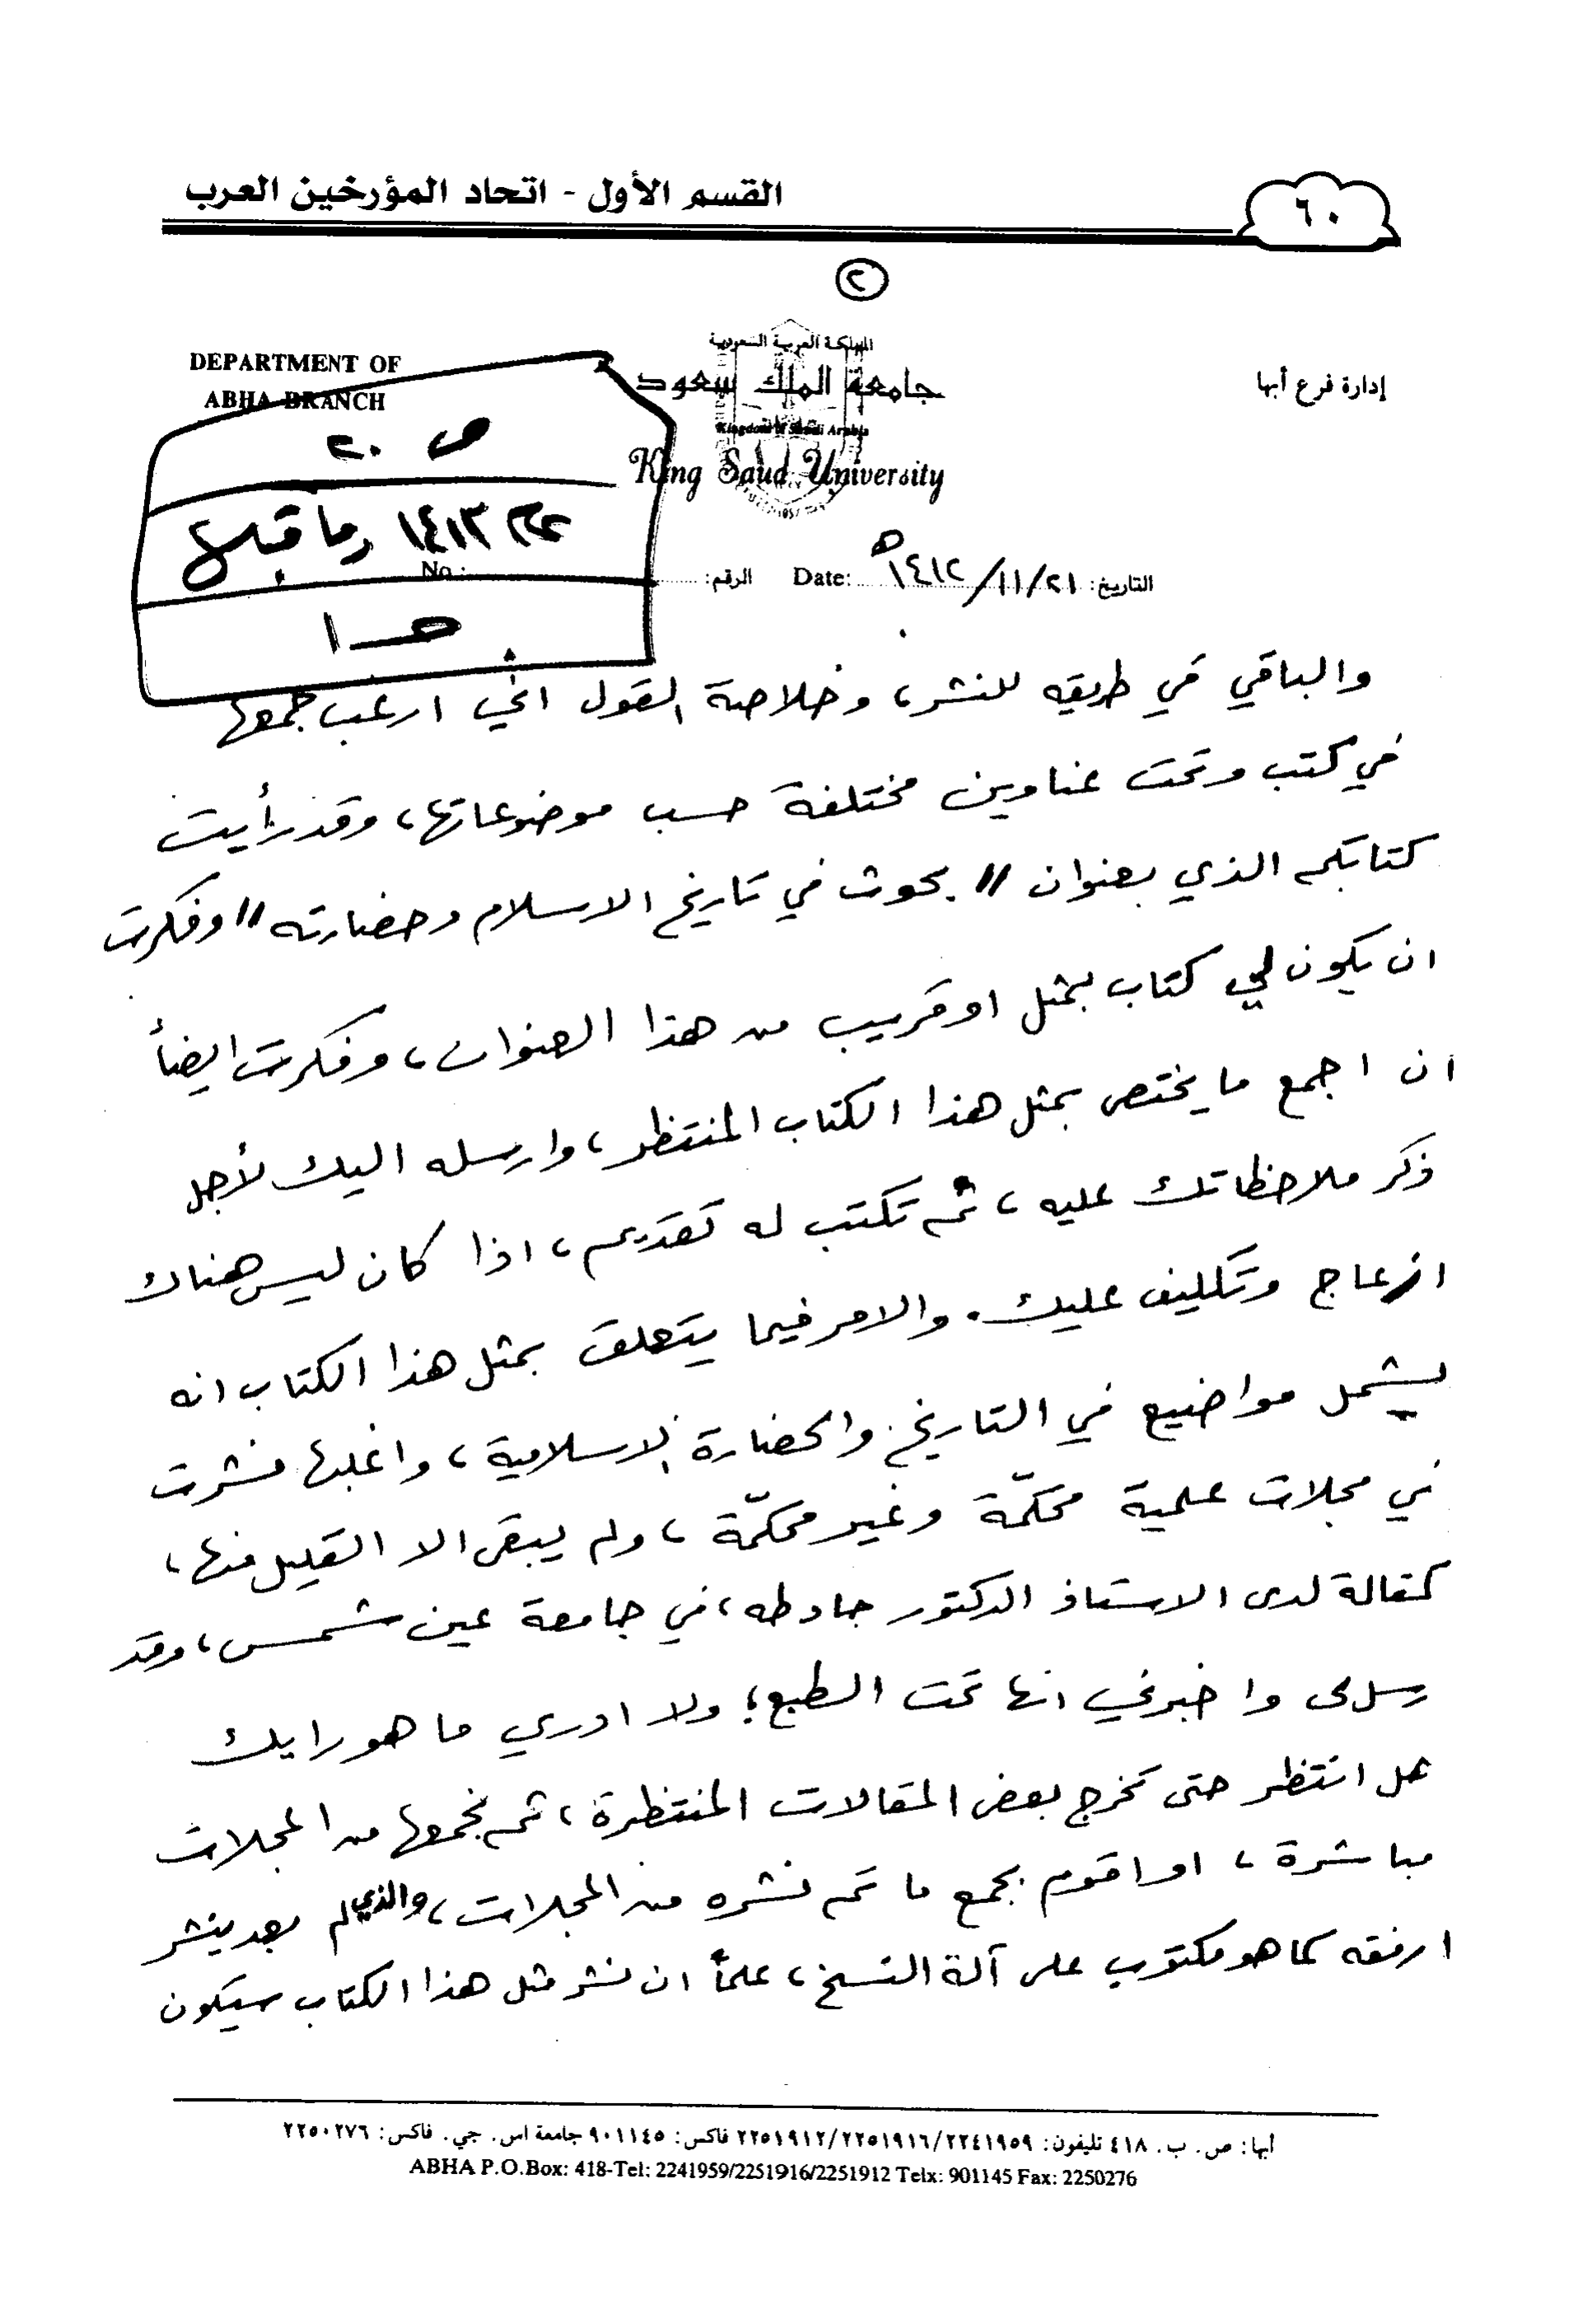 القسم الأول - اتحاد المؤرخين العرب
٦٠
٢
DEPARTMENT OF
ABHA BRANCH
المملكة العربية السعودية
جامعة الملك سعود
Kingdom of Saudi Arabia
King Saud University
إدارة فرع أبها
ص ٢٠
١٤١٣ وما قبلها
التاريخ: ١٤١٢/١١/٢١ هـ Date: الرقم: No.:
والباقي في طريقه للنشر، وخلاصة القول اني ارغب جمعها
في كتب وتحت عناوين مختلفة حسب موضوعاتها، وقد رأيت
كتابكم الذي بعنوان "بحوث في تاريخ الاسلام وحضارته" وفكرت
ان يكون لي كتاب بمثل او قريب من هذا العنوان، وفكرت ايضاً
ان اجمع ما يختص بمثل هذا الكتاب المنتظر، وارسله اليك لأجل
ذكر ملاحظاتك عليه، ثم تكتب له تقديم، اذا كان ليس هناك
ازعاج وتكليف عليك. والامر فيما يتعلق بمثل هذا الكتاب انه
يشمل مواضيع في التاريخ والحضارة الاسلامية، واغلبها نشرت
في مجلات علمية محكّمة وغير محكّمة، ولم يبقى الا القليل منها،
كمقالة لدى الاستاذ الدكتور جاد طه، في جامعة عين شمس، وقد
رسل لى واخبرني انها تحت الطبع؛ ولا ادري ما هو رايك
هل انتظر حتى تخرج بعض المقالات المنتظرة، ثم نجمعها من المجلات
مباشرة، او اقوم بجمع ما تم نشره من المجلات، والذي لم يعد ينشر
ارفقه كما هو مكتوب على آلة النسخ، علماً ان نشر مثل هذا الكتاب سيكون
أبها: ص. ب. ٤١٨ تليفون: ٢٢٥١٩١٢/٢٢٥١٩١٦/٢٢٤١٩٥٩ فاكس: ٩٠١١٤٥ جامعة اس. جي. فاكس: ٢٢٥٠٢٧٦
ABHA P.O.Box: 418-Tel: 2241959/2251916/2251912 Telx: 901145 Fax: 2250276